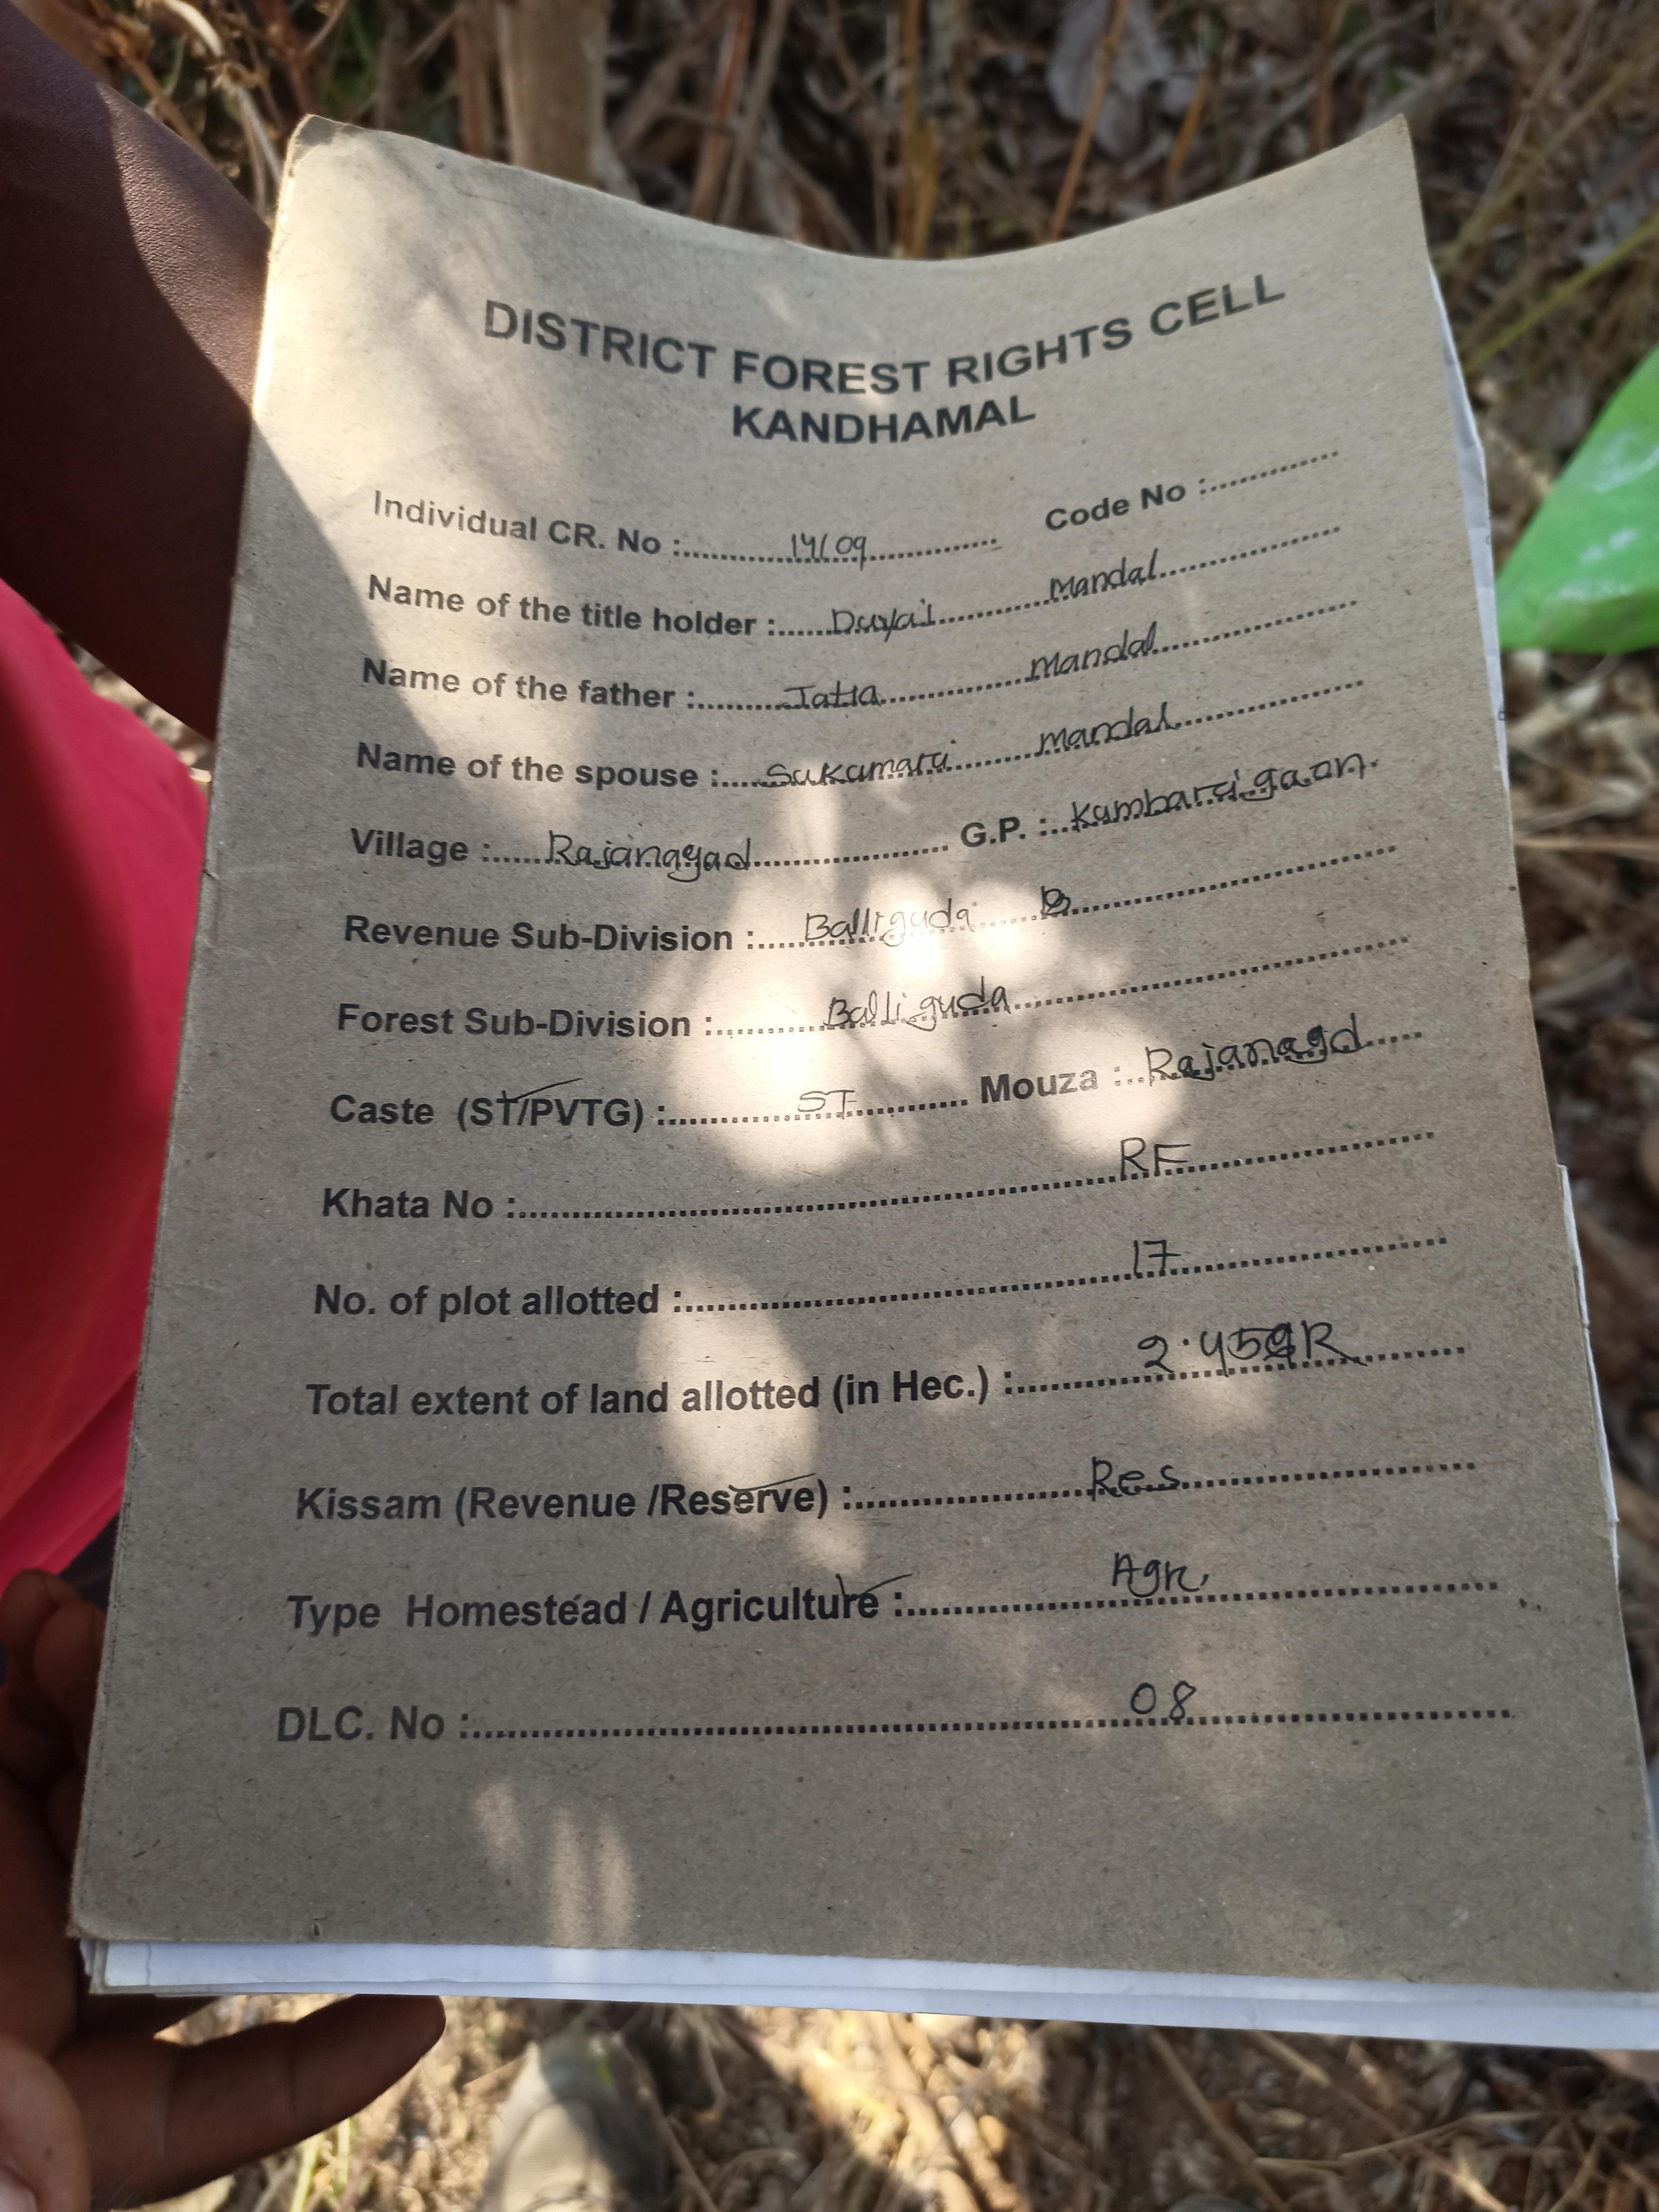 DISTRICT FOREST RIGHTS CELL
KANDHAMAL
Individual CR. No :............14/09.............. Code No :..............
Name of the title holder : Mandal
Name of the father : Mandal
Name of the spouse : Sukamari Mandal
Village : Rajanagad G.P. : Kumbarigaon.
Revenue Sub-Division : Balliguda B
Forest Sub-Division : Balliguda
Caste (ST/PVTG) : ST Mouza : Rajanagd
Khata No : RF
No. of plot allotted : 17
Total extent of land allotted (in Hec.) :
Kissam (Revenue /Reserve) : Res
Type Homestead / Agriculture : Agr.
DLC. No : 08